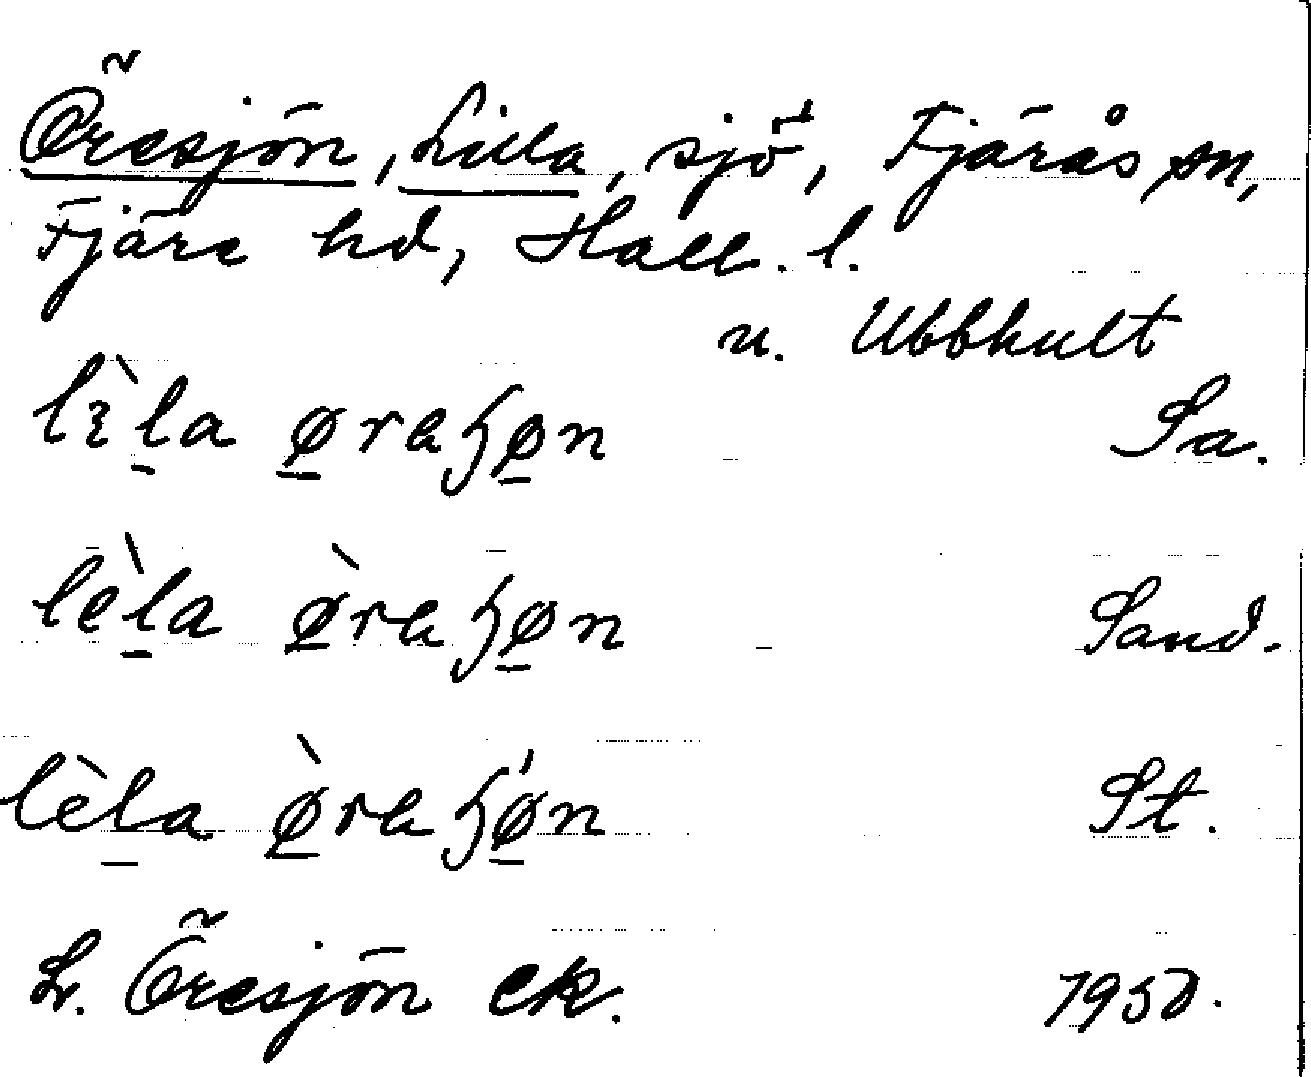 Öresjön, Lilla, sjö, Fjärås sn,
Fjäre hd, Hall. l.
u. Ubbhult
lìla øreʃøn Sa.
lèla ø̀reʃøn Sand.
lèla ø̀reʃǿn St.
L. Öresjön ek. 1950.